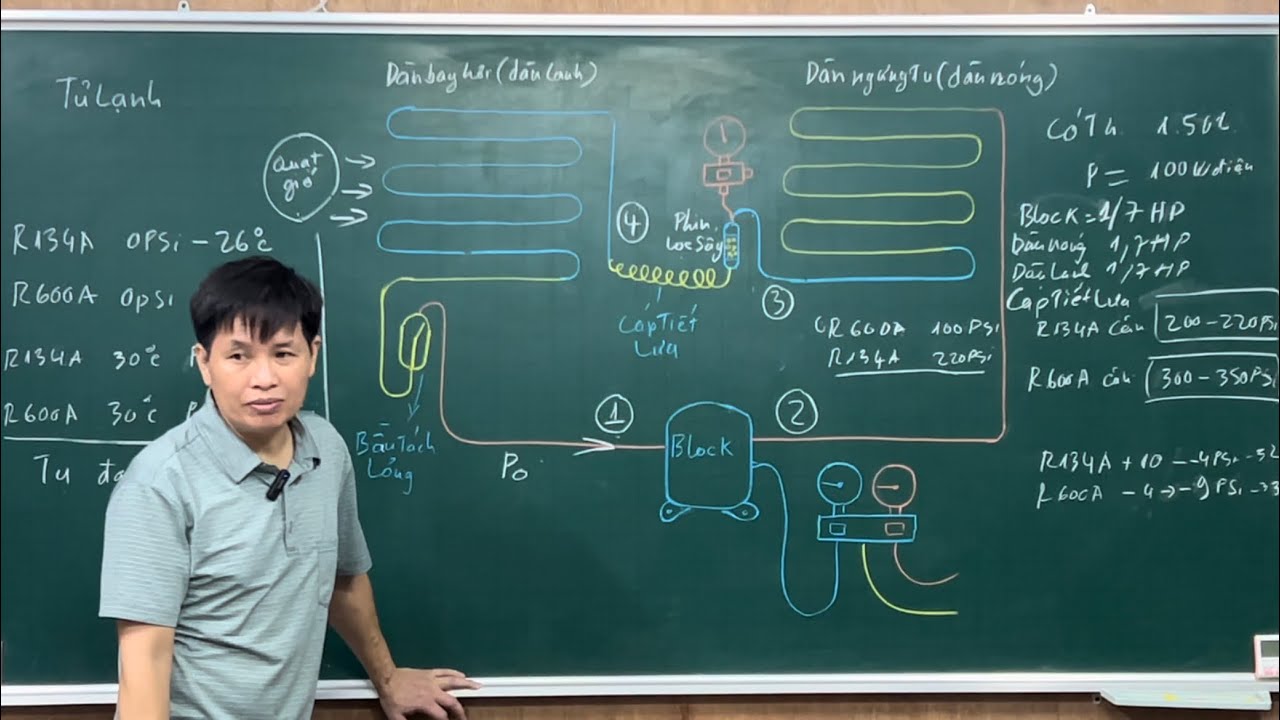 Tủ Lạnh
Quạt gió
R134A 0PSi -26°c
R600A 0PSi
R134A 30°c P
R600A 30°c P
Tụ
Dàn bay hơi (dàn lạnh)
Dàn ngưng Tụ (dàn nóng)
4
Phin lọc Sấy
3
Cáp Tiết Lưu
Bầu Tách Lỏng
Po
1
Block
2
R600A 100PSi
R134A 220PSi
P = 100W điện
Block = 1/7 HP
Dàn nóng 1/7 HP
Dàn Lạnh 1/7 HP
Cáp Tiết Lưu
R134A cân 200-220PSi
R600A cân 300-350PSi
R134A +10 -4PSi
R600A -4 → -9PSi